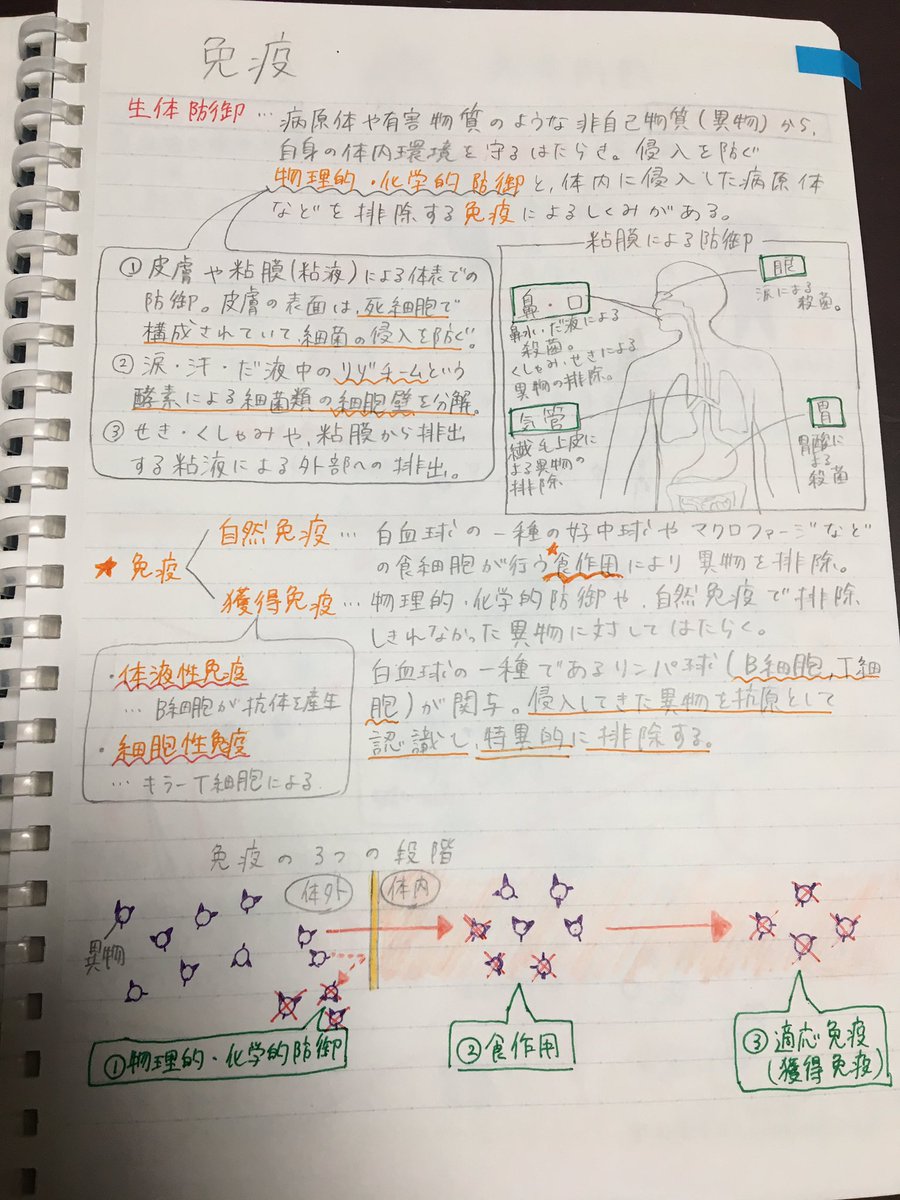 免疫
生体防御…病原体や有害物質のような非自己物質(異物)から、
自身の体内環境を守るはたらき。侵入を防ぐ
物理的・化学的防御と、体内に侵入した病原体
などを排除する免疫によるしくみがある。
①皮膚や粘膜(粘液)による体表での
防御。皮膚の表面は、死細胞で
構成されていて、細菌の侵入を防ぐ。
②涙・汗・だ液中のリゾチームという
酵素による細菌類の細胞壁を分解。
③せき・くしゃみや、粘膜から排出
する粘液による外部への排出。
粘膜による防御
眼
涙による
殺菌。
鼻・口
鼻水・だ液による
殺菌。
くしゃみ・せきによる
異物の排除。
気管
繊毛上皮に
よる異物の
排除
胃
胃酸に
よる
殺菌
★免疫
自然免疫…白血球の一種の好中球やマクロファージなど
の食細胞が行う★食作用により異物を排除。
獲得免疫…物理的・化学的防御や、自然免疫で排除
しきれなかった異物に対してはたらく。
白血球の一種であるリンパ球(B細胞、T細
胞)が関与。侵入してきた異物を抗原として
認識し、特異的に排除する。
・体液性免疫
…B細胞が抗体を産生
・細胞性免疫
…キラーT細胞による
免疫の3つの段階
体外
体内
異物
①物理的・化学的防御
②食作用
③適応免疫
(獲得免疫)